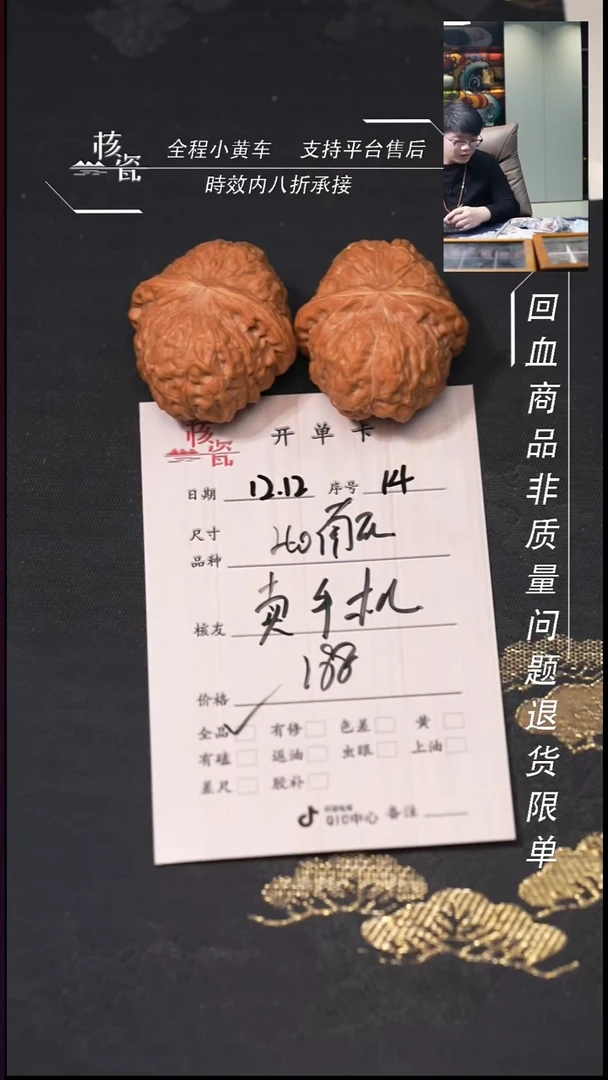 核瓷
全程小黄车 支持平台售后
時效内八折承接
回血商品非质量问题退货限单
核瓷
开单卡
日期 12.12 序号 14
尺寸
品种 40南瓦
核友 卖手机
价格 188
全品 有修 色差 黄
有磕 返油 虫眼 上油
差尺 胶补
抖音电商
QIC中心 备注